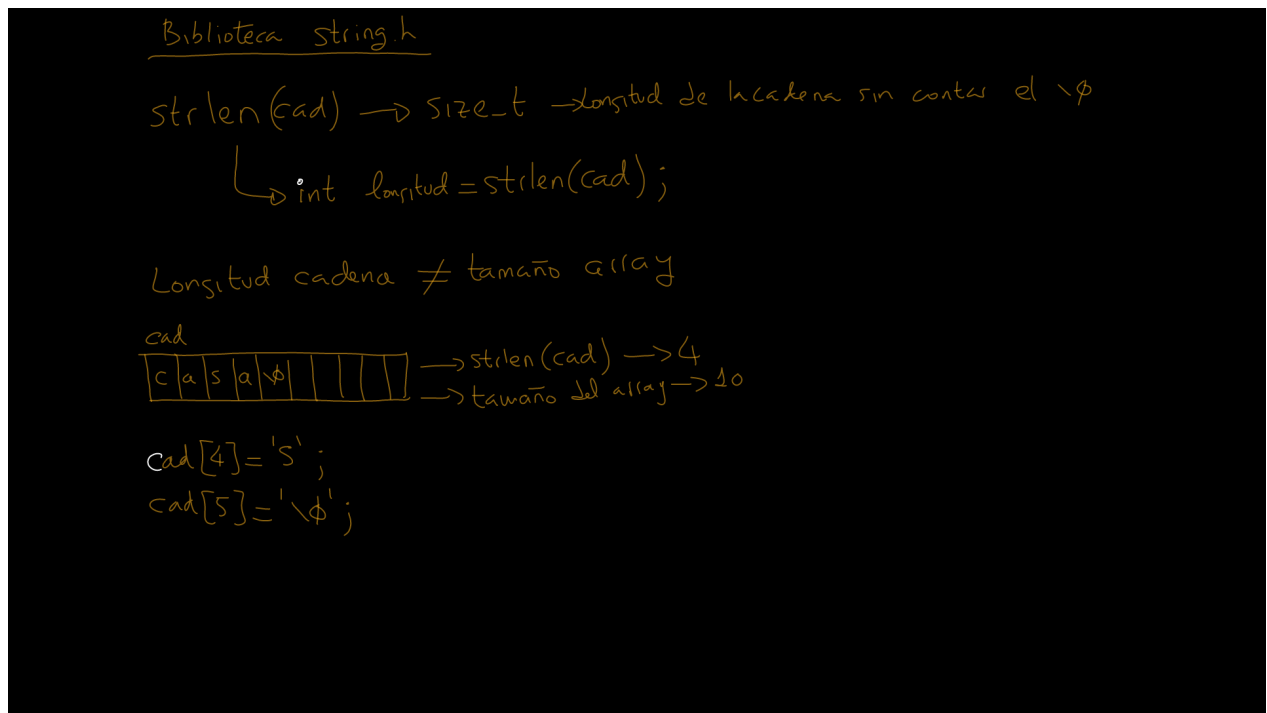 Biblioteca string.h
strlen(cad) → size_t → longitud de la cadena sin contar el \0
int longitud = strlen(cad);
Longitud cadena ≠ tamaño array
cad
c a s a \0
→ strlen(cad) → 4
→ tamaño del array → 10
cad[4] = 's';
cad[5] = '\0';